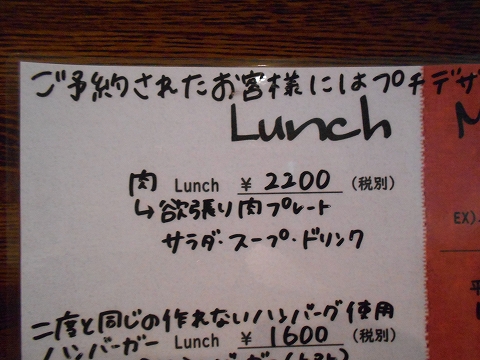 ご予約されたお客様にはプチデザ
Lunch
肉 Lunch ¥ 2200 (税別)
↳欲張り肉プレート
サラダ・スープ・ドリンク
二度と同じの作れないハンバーグ使用
ハンバーガー Lunch ¥ 1600 (税別)
M
EX).